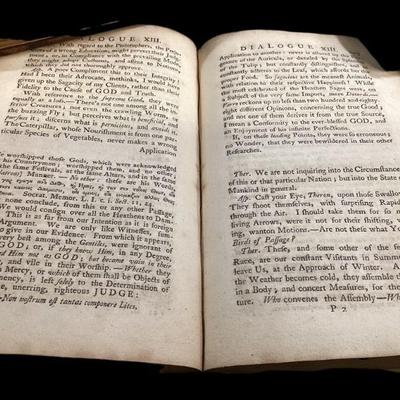 DIALOGUE XIII.
With regard to the Philosophers, the
of a wrong Education, might pervert their
ment; or, in Compliance with the prevailing
they might adopt Customs, and assent to
which they did not thoroughly approve.
Asp. A poor Compliment this to their Integrity!
Had I been their Advocate, methinks, I would have
given up the Sagacity of my Clients, rather than
Fidelity to the Cause of GOD and Truth.
With reference to the supreme Good, they were
equally at a loss.—There's not one among all the
inferior Creatures, not even the crawling Worm, or
the buzzing Fly; but perceives what is beneficial, and
pursues it; discerns what is pernicious, and avoids it.
The Caterpillar, whose Nourishment is from one
particular Species of Vegetables, never makes a wrong
Application
worshipped those Gods, which were acknowledged
his Countrymen; worshipped them, and no other,
same Festivals, at the same Altars, and in the same
Manner.
Socrat. Memor. L. 1. c. 1. Sect. 11, 24.
none conclude, from this or any other Passage,
This is as far from our Intention, as it is foreign
Argument. We are only like Witnesses,
in our Evidence. From which it appears,
very best among the Gentiles, were ignorant of
GOD; or, if they knew Him, in any Degree,
Him not as GOD; but became vain in their
and vile in their Worship.—Whether they
Mercy, or which of them shall be Objects of
is left solely to the Determination of
unerring, righteous JUDGE:
Non nostrum est tantas componere Lites.
DIALOGUE XIII.
Application to another: never is allured by the
of the Auricula, or dazzled by the Splendour
of the Tulip; but constantly distinguishes, and
constantly adheres to the Leaf, which affords her
proper Food. So sagacious are the meanest Animals,
with relation to their respective Happiness! While the
most celebrated of the Heathen Sages were, on
a Subject of the very same Import, mere Dotards.
Varro reckons up no less than two hundred and eighty-
eight different Opinions, concerning the true Good;
and not one of them derives it from the true Source,
I mean a Conformity to the ever-blessed GOD, and
an Enjoyment of his infinite Perfections.
If, on these leading Points, they were so erroneous;
no Wonder, that they were bewildered in their other
Researches.
Ther. We are not inquiring into the Circumstances
of this or that particular Nation; but into the State of
Mankind in general.
Asp. Cast your Eye, Theron, upon those Swallows.
They shoot themselves, with surprising Rapidity,
through the Air. I should take them for so many
living Arrows, were it not for their
ing, wanton Motions.—Are not these what you
Birds of Passage?
Ther. These, and some other of the feathered
Race, are our constant Visitants in Summer;
leave us, at the Approach of Winter. As
the Weather becomes cold, they assemble
in a Body; and concert Measures, for their
ture. Who convenes the Assembly—Who
P 2